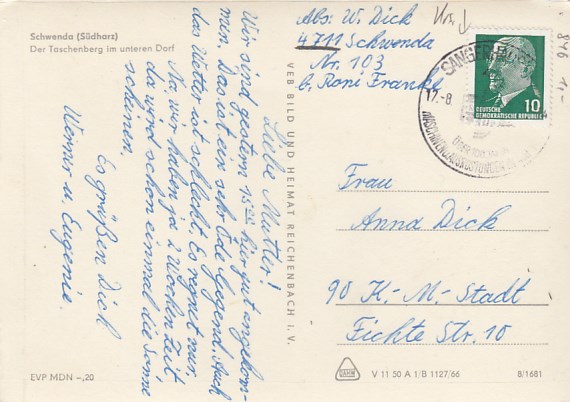 Schwenda (Südharz)
Der Taschenberg im unteren Dorf
Liebe Mutter!
Wir sind gestern 15 hier gut angekom-
men. Das ist ein sehr öde Gegend. Auch
das Wetter ist schlecht. Es regnet nur.
Na, wir haben ja 2 Wochen Zeit
da wird schon einmal die Sonne
scheinen.
Es grüßen Dich
Werner u. Eugenie.
EVP MDN -,20
VEB BILD UND HEIMAT REICHENBACH i. V.
Abs: W. Dick
4711 Schwenda
Nr. 103
b. Roni Franke
SANGERHAUSEN
12.-8.
10
DEUTSCHE
DEMOKRATISCHE REPUBLIK
846 1,-
Frau
Anna Dick
90 K.-M.-Stadt
Fichte Str. 10
V 11 50 A 1/B 1127/66
8/1681